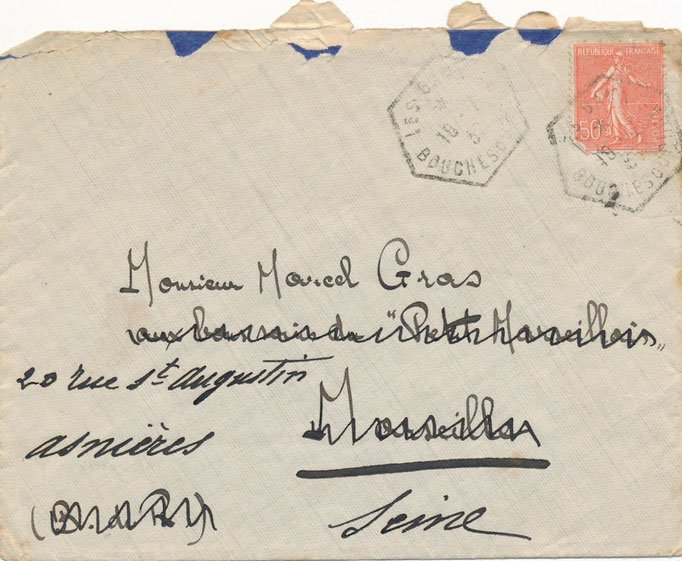 REPUBLIQUE FRANÇAISE
50c
POSTES
LES B
18
BOUCHES
BOUCHES
Monsieur Marcel Gras
aux bureaux du "Petit Marseillais"
20 rue St Augustin
Marseille
asnières
(B. du Rh)
Seine